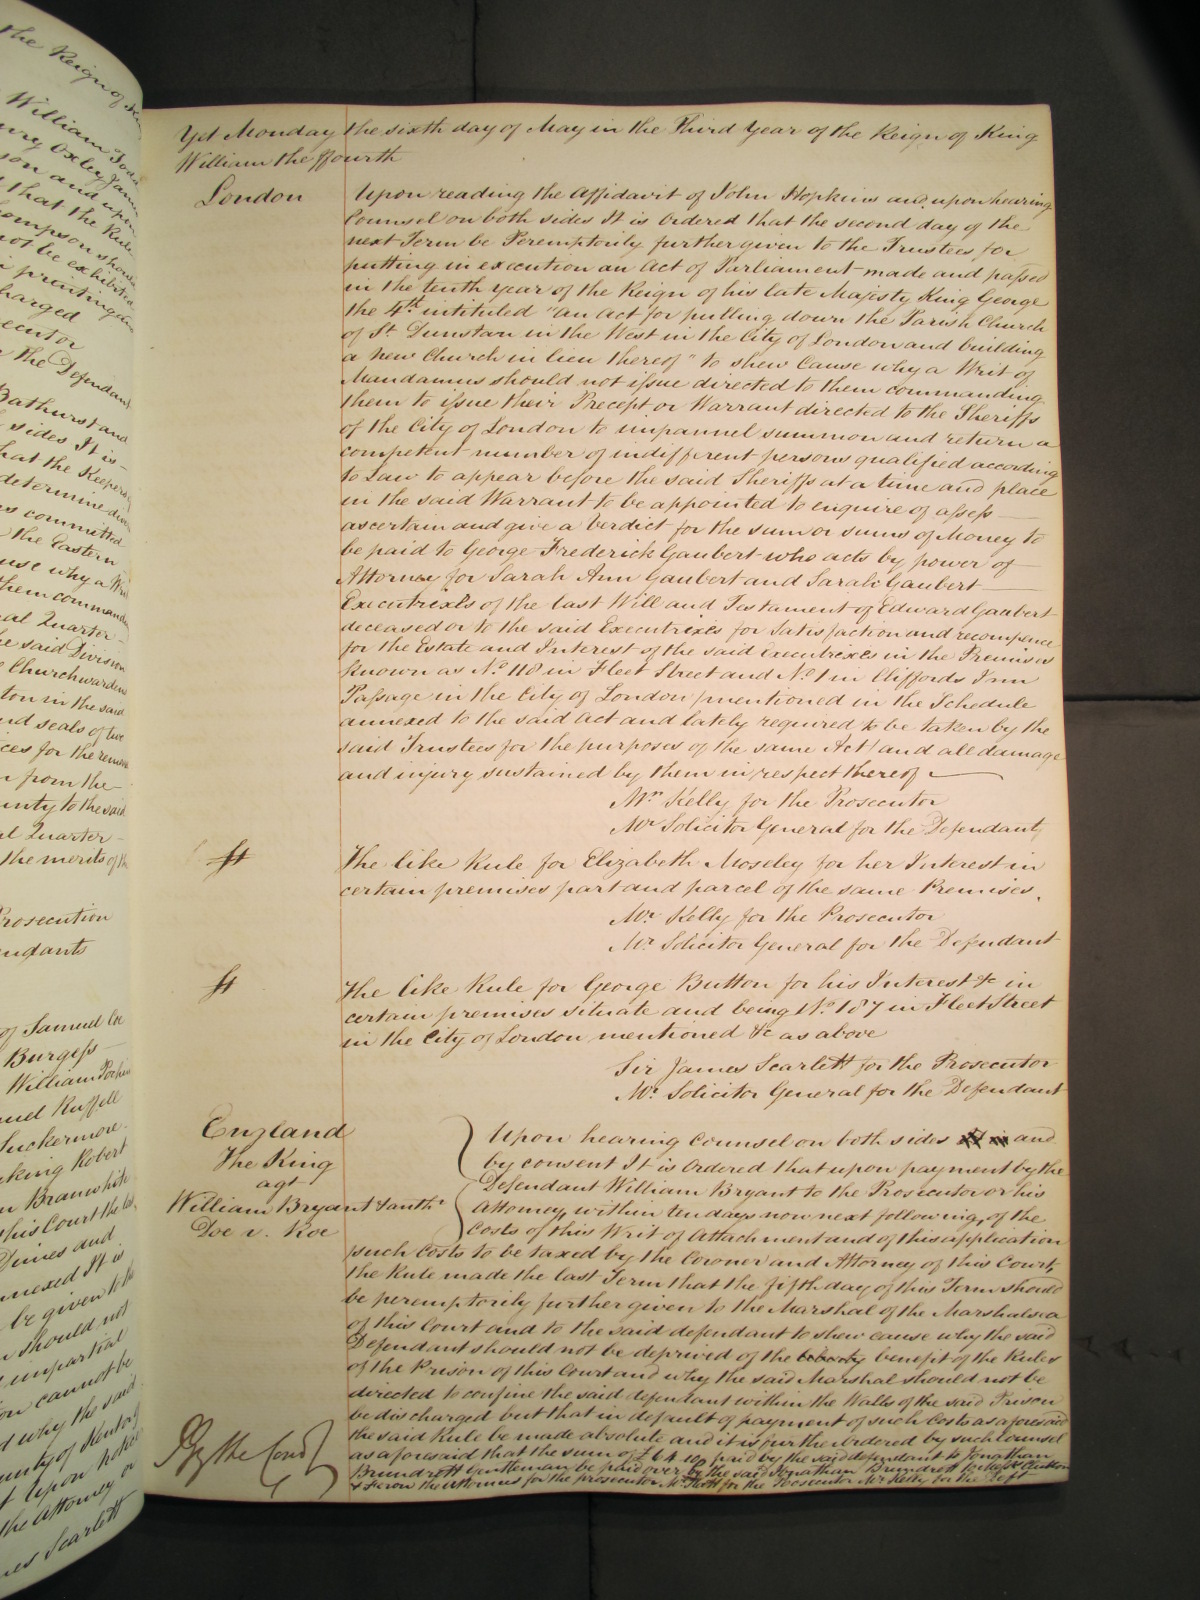 the Reign of
William
that the Rule
not be exhibited
printing
charged
the Defendant
Bathurst and
sides It is
that the Keepers
determine
committed
the Eastern
cause why a Writ
them command
Quarter
said Division
Churchwardens
ton in the said
and seals of two
from the
unty to the said
Quarter
the merits of the
Prosecution
Defendants
of Samuel
Burgess
William
Samuel Russell
Tuckermore
Robert
this Court the
Dines and
annexed It is
be given to the
should not
impartial
cannot be
why the said
County of Kent
upon notice
the Attorney or
Scarlett
Yet Monday the sixth day of May in the Third Year of the Reign of King
William the ffourth
London
Upon reading the Affidavit of John Hopkins and upon hearing
Counsel on both sides It is Ordered that the second day of the
next Term be Peremptorily further given to the Trustees for
putting in execution an Act of Parliament made and passed
in the tenth year of the Reign of his late Majesty King George
the 4th intituled "an Act for pulling down the Parish Church
of St Dunstan in the West in the City of London and building
a new Church in lieu thereof" to shew Cause why a Writ of
Mandamus should not issue directed to them commanding
them to issue their Precept or Warrant directed to the Sheriffs
of the City of London to impannel summon and return a
competent number of indifferent persons qualified according
to Law to appear before the said Sheriffs at a time and place
in the said Warrant to be appointed to enquire of assess
ascertain and give a Verdict for the sum or sums of Money to
be paid to George Frederick Gaubert who acts by power of
Attorney for Sarah Ann Gaubert and Sarah Gaubert
Executrixes of the last Will and Testament of Edward Gaubert
deceased or to the said Executrixes for Satisfaction and recompence
for the Estate and Interest of the said Executrixes in the Premises
known as No. 118 in Fleet Street and No. 1 in Cliffords Inn
Passage in the City of London (mentioned in the Schedule
annexed to the said Act and lately required to be taken by the
said Trustees for the purposes of the same Act) and all damage
and injury sustained by them in respect thereof
Mr Kelly for the Prosecutor
Mr Solicitor General for the Defendants
ss
The like Rule for Elizabeth Moseley for her Interest in
certain premises part and parcel of the same Premises.
Mr Kelly for the Prosecutor
Mr Solicitor General for the Defendant
ss
The like Rule for George Button for his Interest &c in
certain premises situate and being No. 187 in Fleet Street
in the City of London mentioned &c as above
Sir James Scarlett for the Prosecutor
Mr Solicitor General for the Defendant
England
The King
agt
William Bryant
Doe v. Roe
Upon hearing Counsel on both sides and
by consent It is Ordered that upon payment by the
Defendant William Bryant to the Prosecutor or his
Attorney, within ten days now next following, of the
Costs of this Writ of Attachment and of this application
such Costs to be taxed by the Coroner and Attorney of this Court,
the Rule made the last Term that the fifth day of this Term should
be peremptorily further given to the Marshal of the Marshalsea
of this Court and to the said defendant to shew cause why the said
Defendant should not be deprived of the liberty benefit of the Rules
of the Prison of this Court and why the said Marshal should not be
directed to confine the said defendant within the Walls of the said Prison
be discharged but that in default of payment of such Costs as aforesaid
the said Rule be made absolute and it is further Ordered by such Counsel
as aforesaid that the sum of £64.10 paid by the said defendant to Jonathan
Brundrett Gentleman be paid over by the said Jonathan Brundrett to Messrs Clutton
& Fearon the Attornies for the prosecutor Mr for the Prosecutor Mr Kelly for the Deft
By the Court